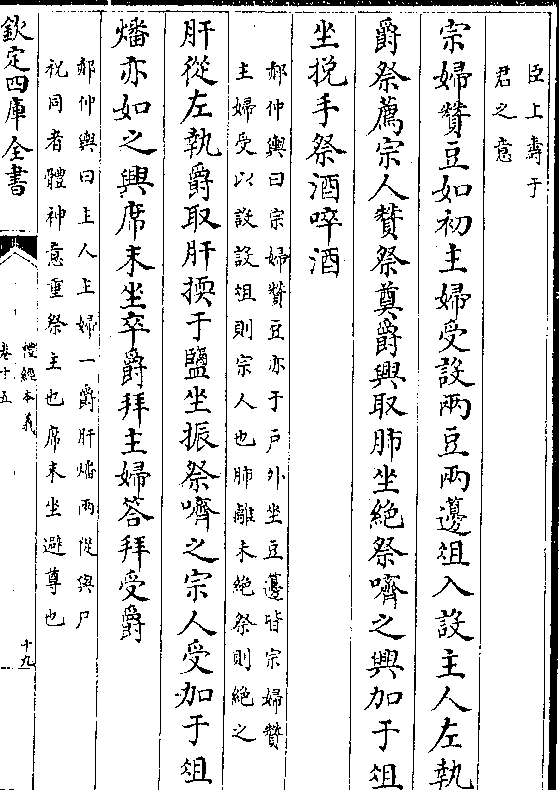 臣上壽于
君之意
宗婦贊豆如初主婦受設兩豆兩籩俎入設主人左執
爵祭薦宗人贊祭奠爵興取肺坐絶祭嚌之興加于俎
坐挩手祭酒啐酒
郝仲輿曰宗婦贊豆亦于户外坐豆籩皆宗婦贊
主婦受以設設俎則宗人也肺離未絶祭則絶之
肝從左執爵取肝擩于鹽坐振祭嚌之宗人受加于俎
燔亦如之興席末坐卒爵拜主婦答拜受爵
郝仲輿曰主人主婦一爵肝燔兩從與尸
祝同者體神意重祭主也席末坐避尊也
欽定四庫全書
禮經本義
卷十五
十九